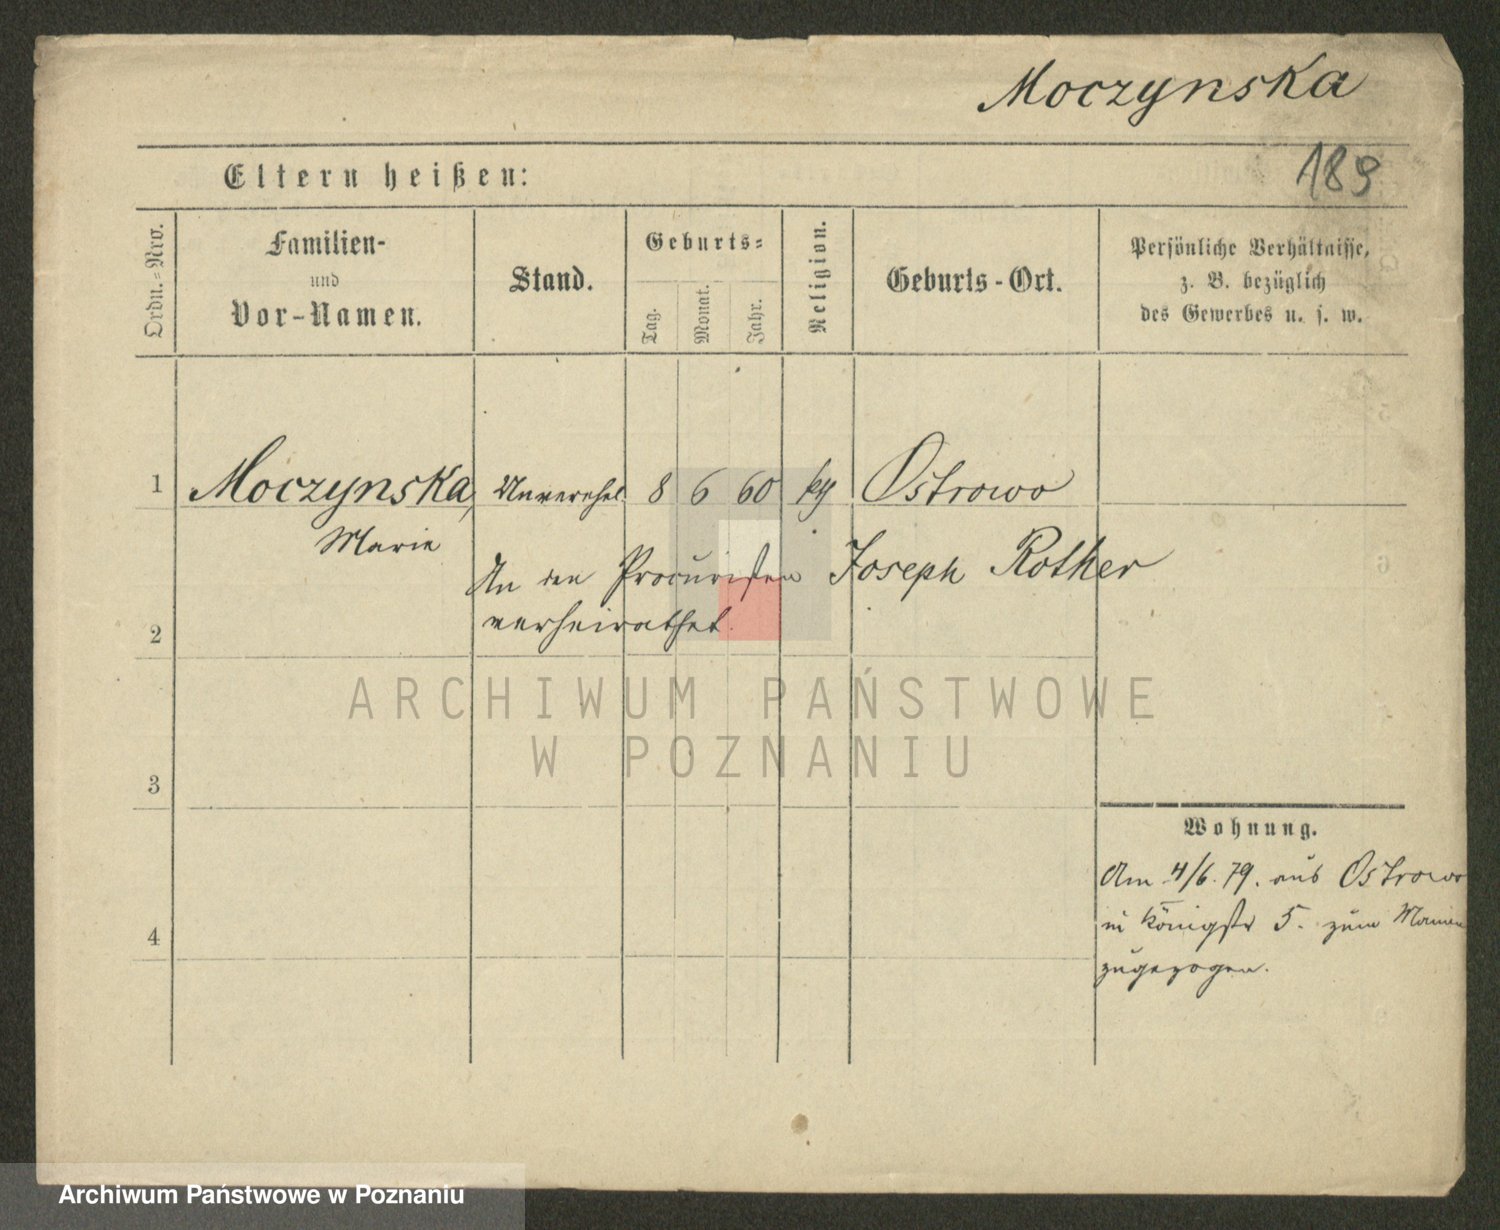 Moczynska
189
Eltern heißen:
Ordn.=Nro.
Familien-
und
Vor-Namen.
Stand.
Geburts=
Tag.
Monat.
Jahr.
Religion.
Geburts-Ort.
Persönliche Verhältnisse,
z. B. bezüglich
des Gewerbes u. s. w.
1 Moczynska, Unverehel. 8 6 60 Ostrowo
Marie
An den Procuristen Joseph Rother
verheirathet.
2
ARCHIWUM PAŃSTWOWE
W POZNANIU
3
4
Wohnung.
Am 4/6. 79. aus Ostrowo
in Königstr 5. zum
zugezogen.
Archiwum Państwowe w Poznaniu